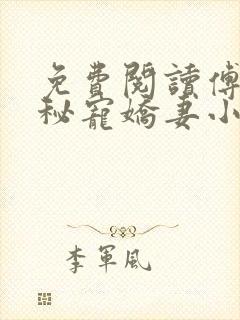 免費閱讀傅
秘寵嬌妻小
李軍風